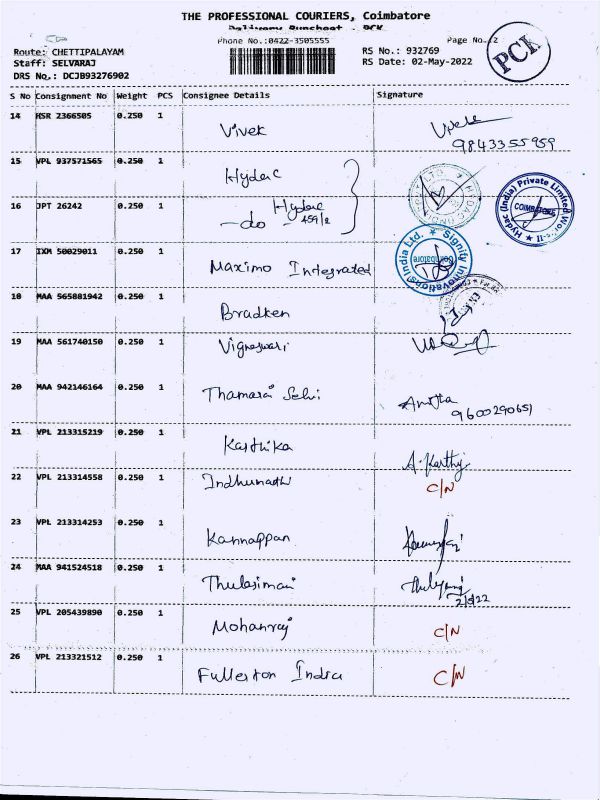 THE PROFESSIONAL COURIERS, Coimbatore
Delivery Runsheet - PCK
Phone No.:0422-3505555
Page No. 2
PCK
Route: CHETTIPALAYAM
Staff: SELVARAJ
DRS No.: DCJB93276902
RS No.: 932769
RS Date: 02-May-2022
S No Consignment No Weight PCS Consignee Details Signature
14 HSR 2366505 0.250 1 Vivek
9843355959
15 VPL 937571565 0.250 1 Hydac
16 JPT 26242 0.250 1 Hydac
-do
Hydac (India) Private Limited
COIMBATORE
17 IXM 50029011 0.250 1 Maximo Integrated
Signify Innovations India Ltd.
Coimbatore
18 MAA 565881942 0.250 1 Bradken
19 MAA 561740150 0.250 1 Vigneswari
20 MAA 942146164 0.250 1 Thamarai Selvi
9600290651
21 VPL 213315219 0.250 1 Karthika A. Karthy
22 VPL 213314558 0.250 1 Indhumathi C/N
23 VPL 213314253 0.250 1 Kannappan
24 MAA 941524518 0.250 1 Thulasimani
25 VPL 205439890 0.250 1 Mohanraj C/N
26 VPL 213321512 0.250 1 Fullerton India C/N